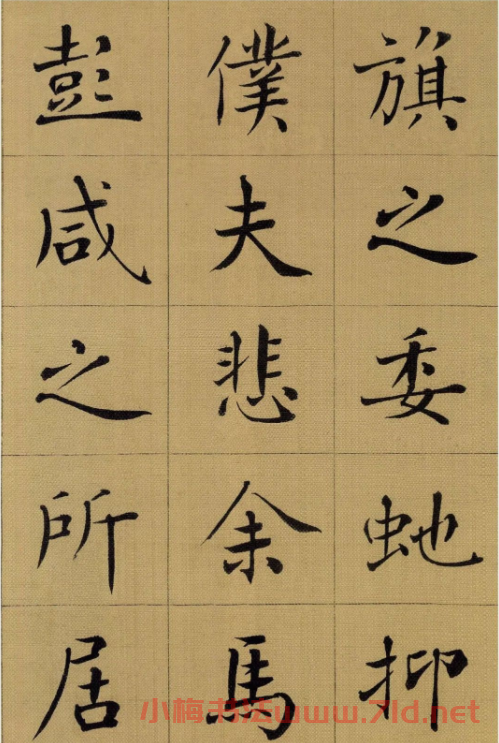 旗之委蛇抑
僕夫悲余馬
彭咸之所居
小梅书法www.7ld.net